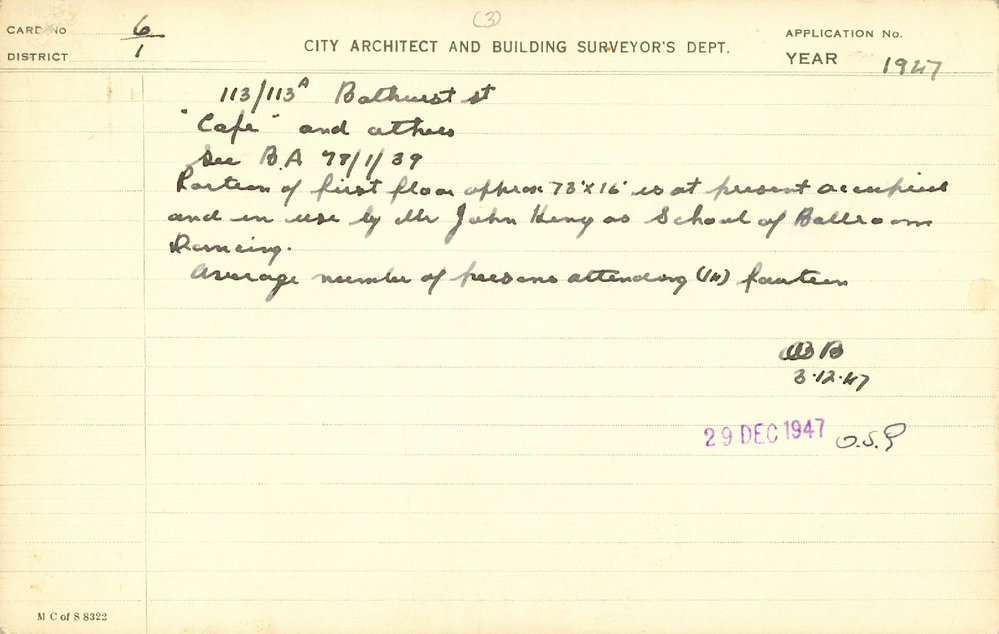 (3)
CARD No 6
DISTRICT 1
CITY ARCHITECT AND BUILDING SURVEYOR'S DEPT.
APPLICATION No.
YEAR 1947
113/113A Bathurst st
"Cafe" and others
See B.A 78/1/39
Portion of first floor approx 73'x16' is at present occupied
and in use by Mr John Heny as School of Ballroom
Dancing.
Average number of persons attending (14) fourteen
B B
3.12.47
29 DEC 1947 O.S.P
M C of S 8322